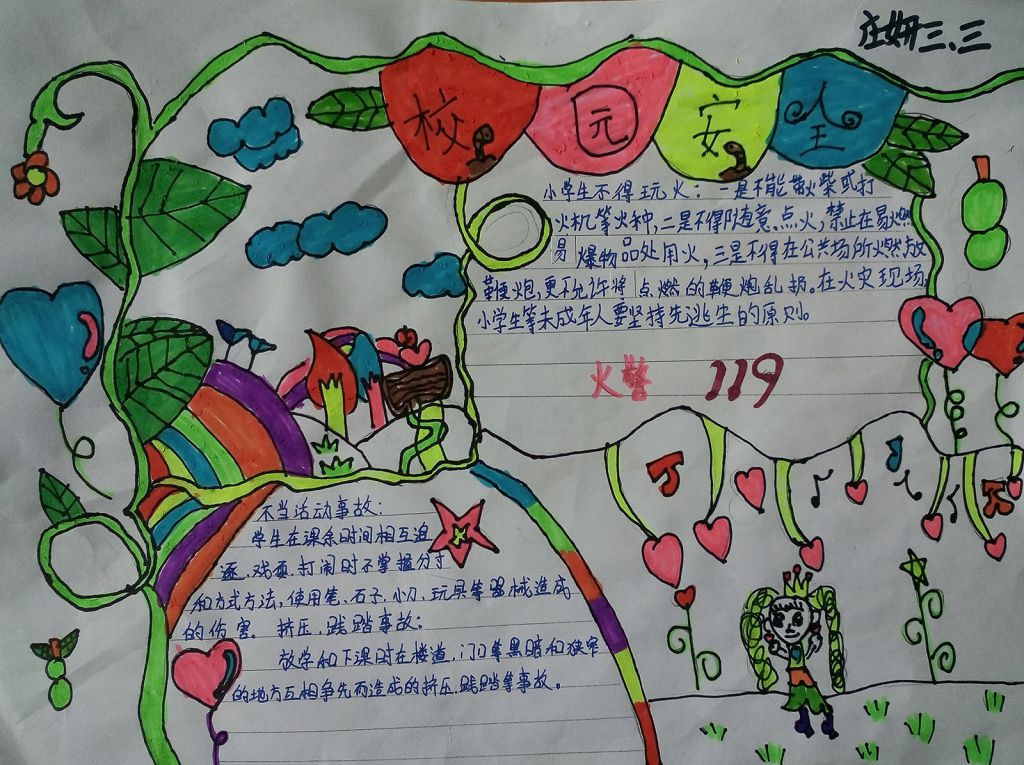 庄妍三.三
校园安全
小学生不得玩火：一是不能带火柴或打
火机等火种，二是不得随意点火，禁止在易燃
易爆物品处用火，三是不得在公共场所燃放
鞭炮，更不允许将点燃的鞭炮乱扔。在火灾现场，
小学生等未成年人要坚持先逃生的原则。
火警 119
不当活动事故：
学生在课余时间相互追
逐.戏耍.打闹时不掌握分寸
和方式方法，使用笔、石子、小刀、玩具等器械造成
的伤害。挤压.践踏事故：
放学和下课时在楼道，门口等黑暗和狭窄
的地方互相争先而造成的挤压.践踏等事故。